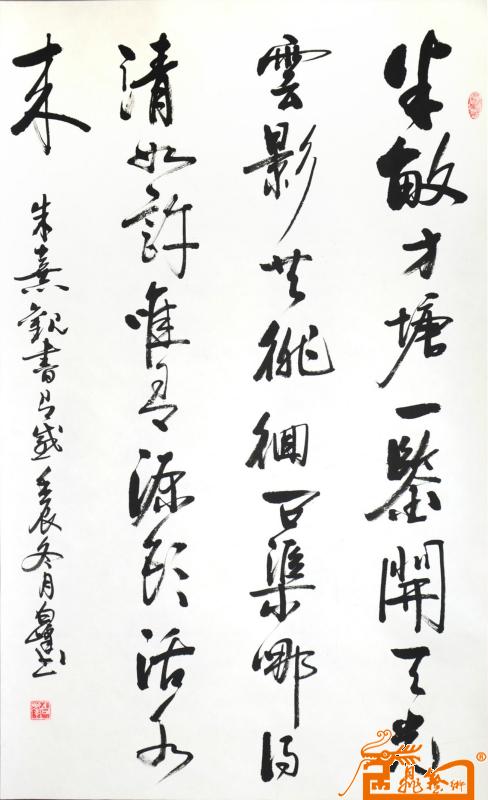 半畝方塘一鑒開天光
雲影共徘徊問渠哪得
清如許唯有源頭活水
来
朱熹觀書有感壬辰冬月